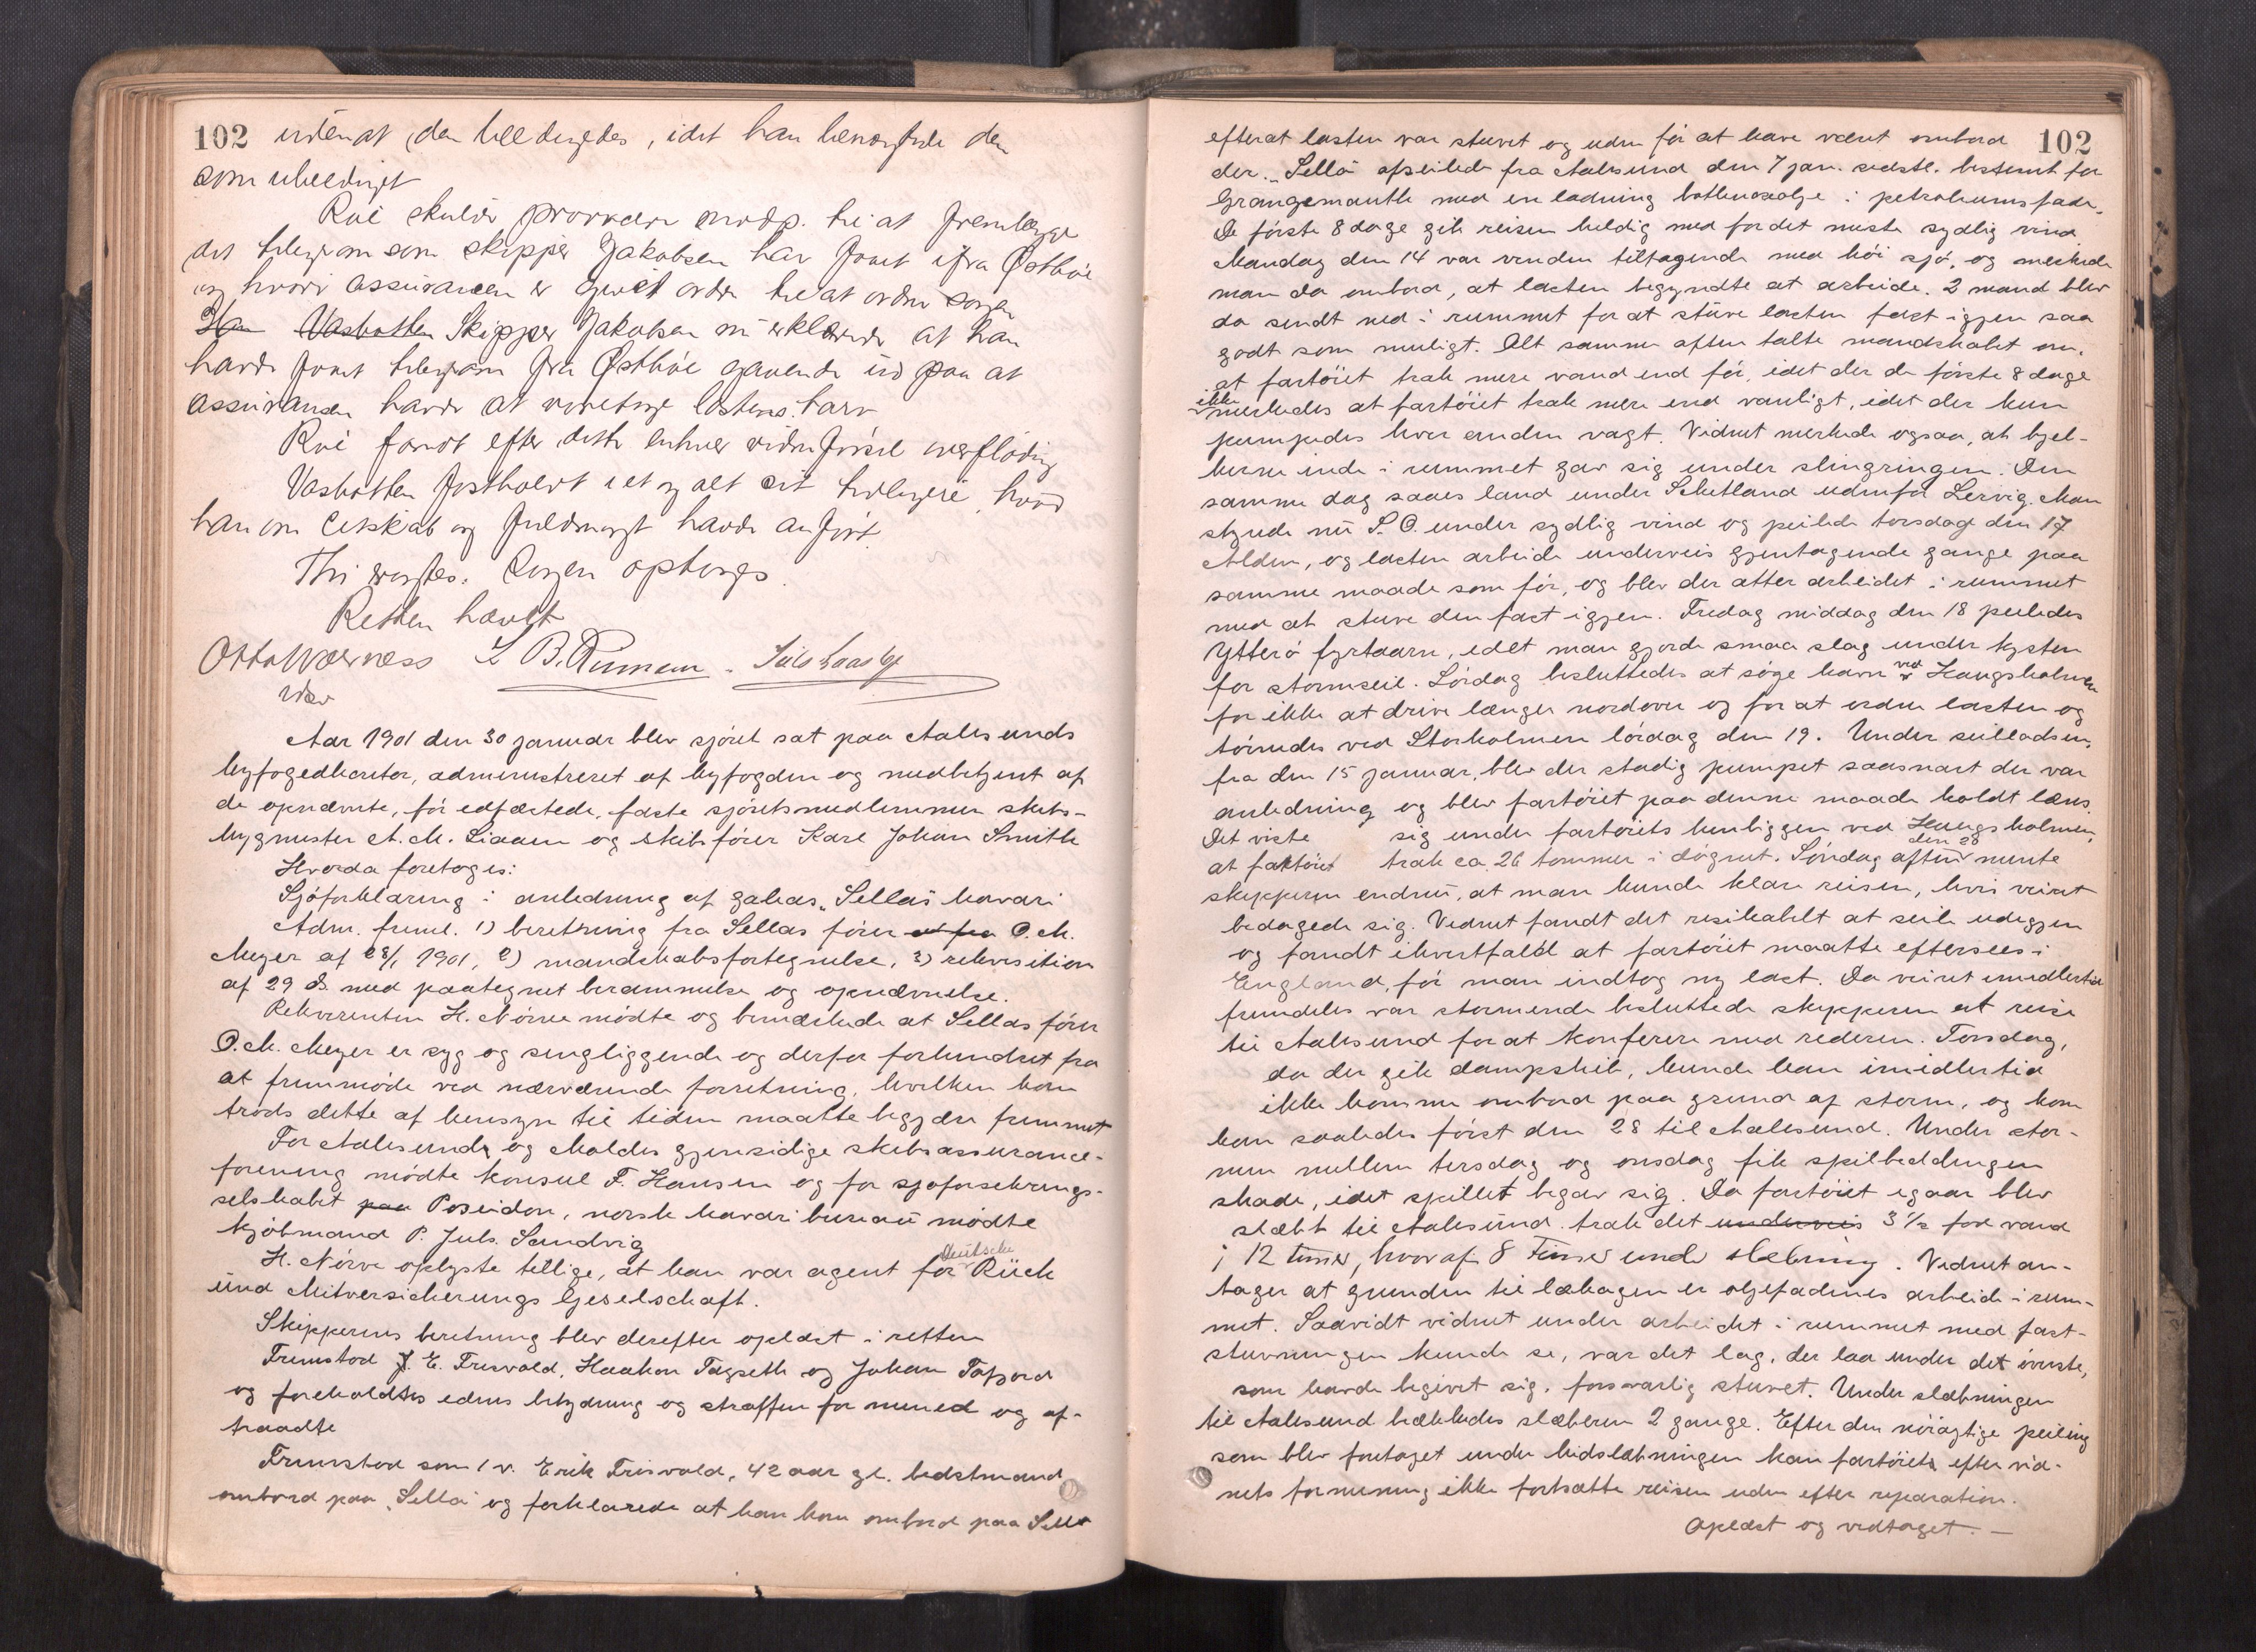 102 udenat den beedigedes, idet han benægtede den
som ubeediget
Roé skulde provocere modp. til at fremlægge
det telegram som skipper Jakobsen har faaet ifra Østhóe
og hvori assurancen er givet ordre til at ordne sagen
Han Vasbotten Skipper Jakobsen nu erklærede at han
havde faaet telegram fra Østhóe gaaende ud paa at
assurancen havde at varetage lastens tarv
Roé fandt efter dette enhver videre försel overflödig
Vasbotten fastholdt i et og alt sit tidligere, hvad
han om Letskab og fuldmagt havde anfört.
Thi vragtes. Sagen optoges.
Retten hævet
Otto Værness L B. Rumem
Aar 1901 den 30 januar blev sjöret sat paa Aalesunds
byfogedkontor, administreret af byfogden og medbetjent af
de opnævnte, för edfæstede, faste sjöretsmedlemmer skibs-
bygmester A. M. Liaaen og skibsförer Karl Johan Smith
Hvorda foretoges:
Sjöforklaring i anledning af galeas „Sella's havari
Adm. freml. 1) beretning fra Sellas förer O. M.
Meyer af 28/1 1901, 2) mandskabsfortegnelse, 3) rekvisition
af 29 ds. med paategnet berammelse og opnævnelse.
Rekvirenten H. Nörve mödte og bemærkede at Sellas förer
O. M. Meyer er syg og sengliggende og derfor forhindret fra
at fremmöde ved nærværende forretning, hvilken han
trods dette af hensyn til tiden maatte begjære fremmet
For Aalesunds og Moldes gjensidige skibsassurance-
forening mödte konsul F. Hansen og for sjoforsikrings-
selskabet paa Poseidon, norsk havari bureau mödte
kjöbmand P. Jul. Sandvig
H. Nörve oplyste tillige, at han var agent for deutsche Rück
und Mitversicherungs Geselschaft.
Skipperens beretning blev derefter oplæst i retten
Fremstod J. E. Frisvold, Haakon Tagseth og Johan Tafjord
og foreholdtes edens betydning og straffen for mened og af-
traadte
Fremstod som 1 v. Erik Frisvold, 42 aar gl. bedstmand
ombord paa „Sella" og forklarede at han kom ombord paa Sella
efterat lasten var stuvet og uden för at have været ombord 102
der. „Sella" afseilede fra Aalesund den 7 jan. sidstl. bestemt for
Grangemouth med en ladning bottlenoseolje i petroleumsfade.
De förste 8 dage gik reisen heldig med for det meste sydlig vind
Mandag den 14 var vinden tiltagende med höi sjö, og merkede
man da ombord, at lasten begyndte at arbeide. 2 mand blev
da sendt ned i rummet for at stuve lasten fast igjen saa
godt som muligt. Alt samme aften talte mandskabet om,
at fartöiet trak mere vand end för, idet der de förste 8 dage
ikke merkedes at fartöiet trak mere end vanligt, idet der kun
pumpedes hver anden vagt. Vidnet merkede ogsaa, at bjel-
kerne inde i rummet gav sig under slingringen. Den
samme dag saaes land under Schetland udenfor Lervig. Man
styrede nu S. O. under sydlig vind og peilede torsdag den 17
Alden, og lasten arbeide underveis gjentagende gange paa
samme maade som för, og blev der atter arbeidet i rummet
med at stuve den fast igjen. Fredag middag den 18 peiledes
Ytterö fyrtaarn, idet man gjorde smaa slag under kysten
for stormseil. Lördag besluttedes at söge havn ved Haugsholmen
for ikke at drive længer nordover og for at ordne lasten og
törnedes ved Storholmen lördag den 19. Under seilladsen,
fra den 15 januar, blev der stadig pumpet saasnart der var
anledning og blev fartöiet paa denne maade holdt læns.
Det viste sig under fartöiets henliggen ved Haugsholmen,
at fartöiet trak ca. 26 tommer i dögnet. Söndag aften den 20 mente
skipperen endnu, at man kunde klare reisen, hvis veiret
bedagede sig. Vidnet fandt det resikabelt at seile udigjen
og fandt ihvertfald at fartöiet maatte eftersees i
England, för man indtog ny last. Da veiret imidlertid
fremdeles var stormende besluttede skipperen at reise
til Aalesund for at konferere med rederen. Torsdag,
da der gik dampskib, kunde han imidlertid
ikke komme ombord paa grund af storm, og kom
han saaledes först den 28 til Aalesund. Under stor-
men mellem tirsdag og onsdag fik spilbeddingen
skade, idet spillet begav sig. Da fartöiet igaar blev
slæbt til Aalesund trak det underveis 3 1/2 fod vand
i 12 timer, hvoraf 8 Timer under slæbning. Vidnet an-
tager at grunden til lækagen er oljefadenes arbeide i rum-
met. Saavidt vidnet under arbeidet i rummet med fast-
stuvningen kunde se, var det lag, der laa under det överste,
som havde begivet sig, forsvarlig stuvet. Under slæbningen
til Aalesund hækledes slæberen 2 gange. Efter den nöiagtige peiling
som blev foretaget under hidslæbningen kan fartöiet efter vid-
nets formening ikke fortsætte reisen uden efter reparation.
Oplæst og vedtaget. —